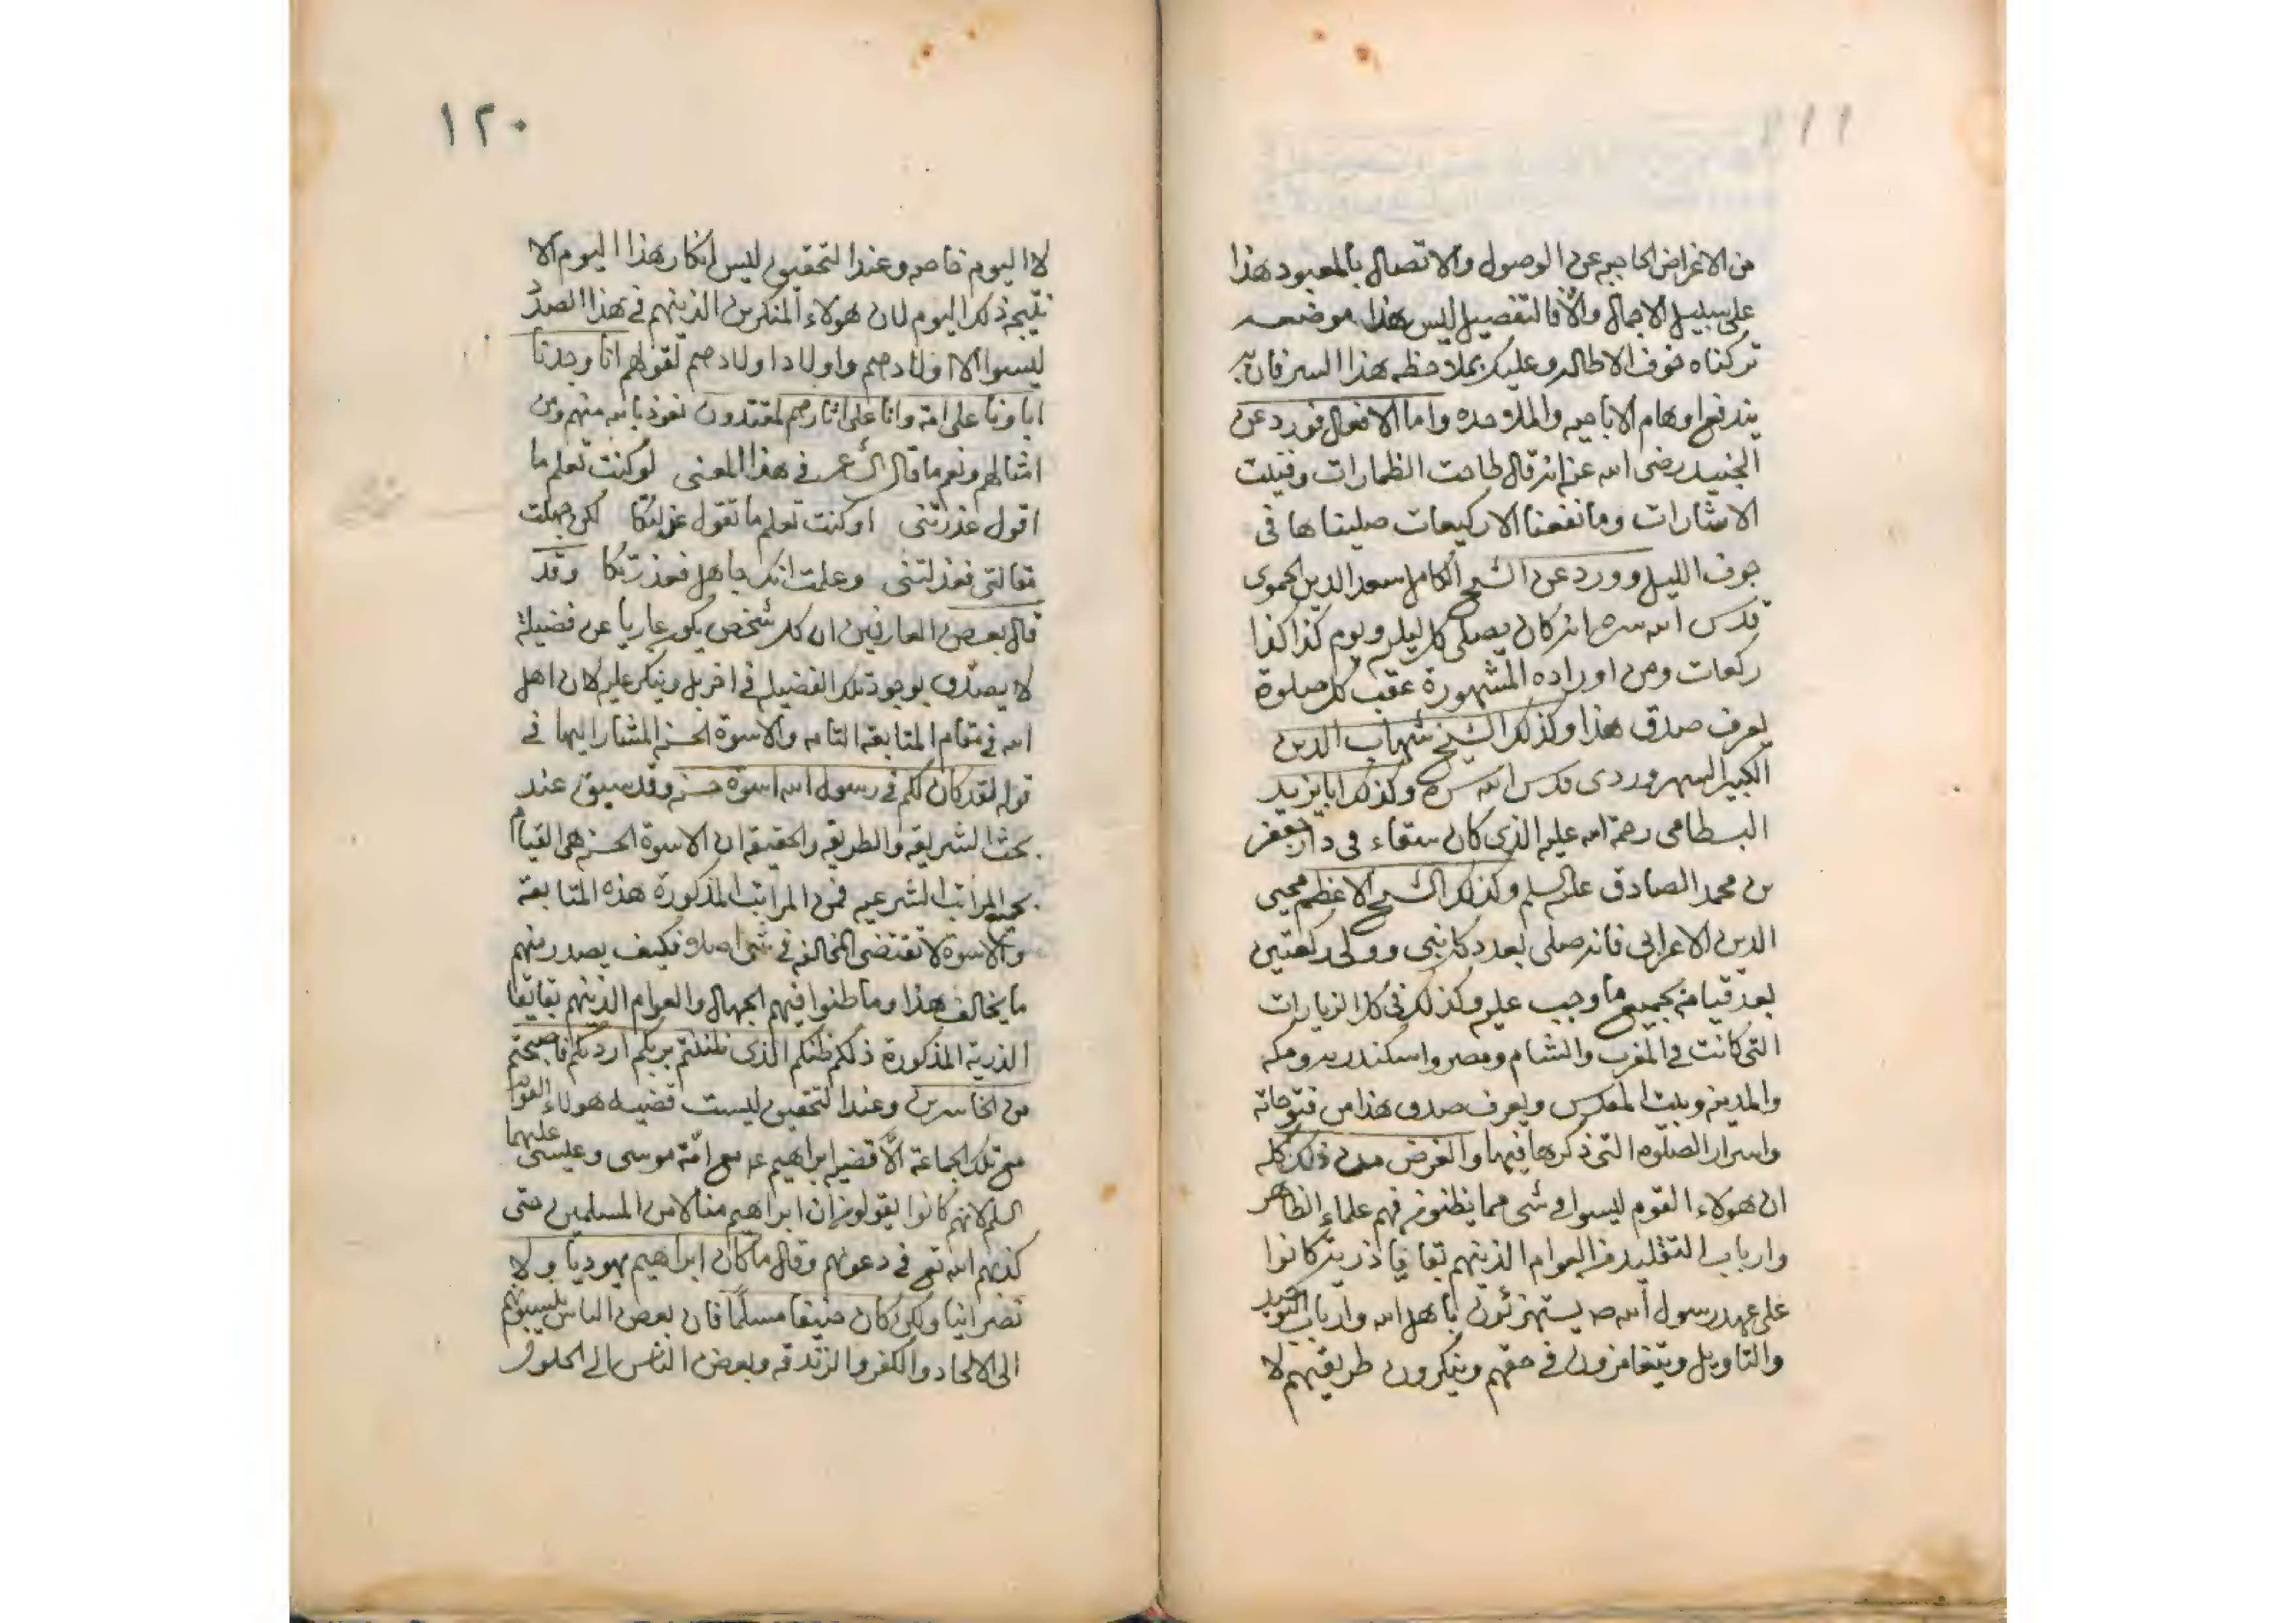 من الاغراض الحاجبه عن الوصول والاتصال بالمعبود هذا
على سبيل الاجمال والّا فالتفصيل ليس هذا موضعه
تركناه خوف الاطاله وعليك بملاحظه هذا السر فان به
يندفع اوهام الاباحيه والملاحده واما الافعال فورد عن
الجنيد رضى الله عنه انه قال طاحت الظمارات وفنيت
الاشارات وما نفعنا الا ركيعات صليناها فى
جوف الليل وورد عن الشيخ الكامل سعد الدين الحموى
قدس الله سره انه كان يصلى كل ليله ويوم كذا كذا
ركعات ومن اوراده المشهورة عقب كل صلوة
يعرف صدق هذا وكذلك الشيخ شهاب الدين
الكبير السهروردى قدس الله سره وكذلك ابا يزيد
البسطامى رحمة الله عليه الذى كان سقاء فى دار جعفر
بن محمد الصادق عليه السلم وكذلك الشيخ الاعظم محيى
الدين الاعرابى فانه صلى بعدد كل نبى وولى ركعتين
بعد قيامه بجميع ما وجب عليه وكذلك فى كل الزيارات
التى كانت فى المغرب والشام ومصر واسكندريه ومكه
والمدينه وبيت المقدس ويعرف صدق هذا من فتوحاته
واسرار الصلوه التى ذكرها فيها والغرض من ذلك كله
ان هولاء القوم ليسوا فى شى مما يظنونه فيهم علماء الظاهر
وارباب التقليد من العوام الذينهم بقايا ذرية كانوا
على عهد رسول الله صـ يستهزئون باهل الله وارباب التوحيد
والتاويل ويتغامزون فى حقهم وينكرون طريقتهم لا
١٢٠
لا اليوم خاصه وعند التحقيق ليس انكار هذا اليوم الا
نتيجه ذلك اليوم لان هولاء المنكرين الذينهم فى هذا الصدد
ليسوا الا اولادهم واولاد اولادهم لقولهم انا وجدنا
اباونا على امة وانا على اثارهم لمقتدون نعوذ بالله منهم ومن
امثالهم ونعم ما قال الشاعر فى هذا المعنى لو كنت تعلم ما
اقول عذرتنى او كنت تعلم ما تقول عذلتكا لكن جهلت
مقالتى فعذلتنى وعلمت انك جاهل فعذرتكا وقد
قال بعض العارفين ان كل شخص يكون عاريا عن فضيلة
لا يصدق بوجود تلك الفضيله فى اخر بل وينكر عليه لان اهل
الله فى مقام المتابعه التامه والاسوة الحسنه المشار اليها فى
قوله لقد كان لكم فى رسول الله اسوة حسنه وقد سبق عند
بحث الشريعه والطريقه والحقيقه ان الاسوة الحسنه هى القيام
بجميع المراتب الشرعيه فمن المراتب المذكورة هذه المتابعة
والاسوة لا تقتضى المخالفه فى شى اصلا فكيف يصدر منهم
ما يخالف هذا وما ظنوا فيهم الجهال والعوام الذينهم بقايا
الذرية المذكورة ذلكم ظنكم الذى ظننتم بربكم ارديكم فاصبحتم
من الخاسرين وعند التحقيق ليست قضيه هولاء القوم
مع تلك الجماعة الّا قضيه ابراهيم عـ مع امّة موسى وعيسى عليهما
السلم لانهم كانوا يقولون ان ابراهيم منا لا من المسلمين حتى
كذبهم الله تع فى دعوتهم وقال ما كان ابراهيم يهوديا ولا
نصرانيا ولكن كان حنيفا مسلمًا فان بعض الناس ينسبونهم
الى الالحاد والكفر والزندقه وبعض الناس الى الحلول